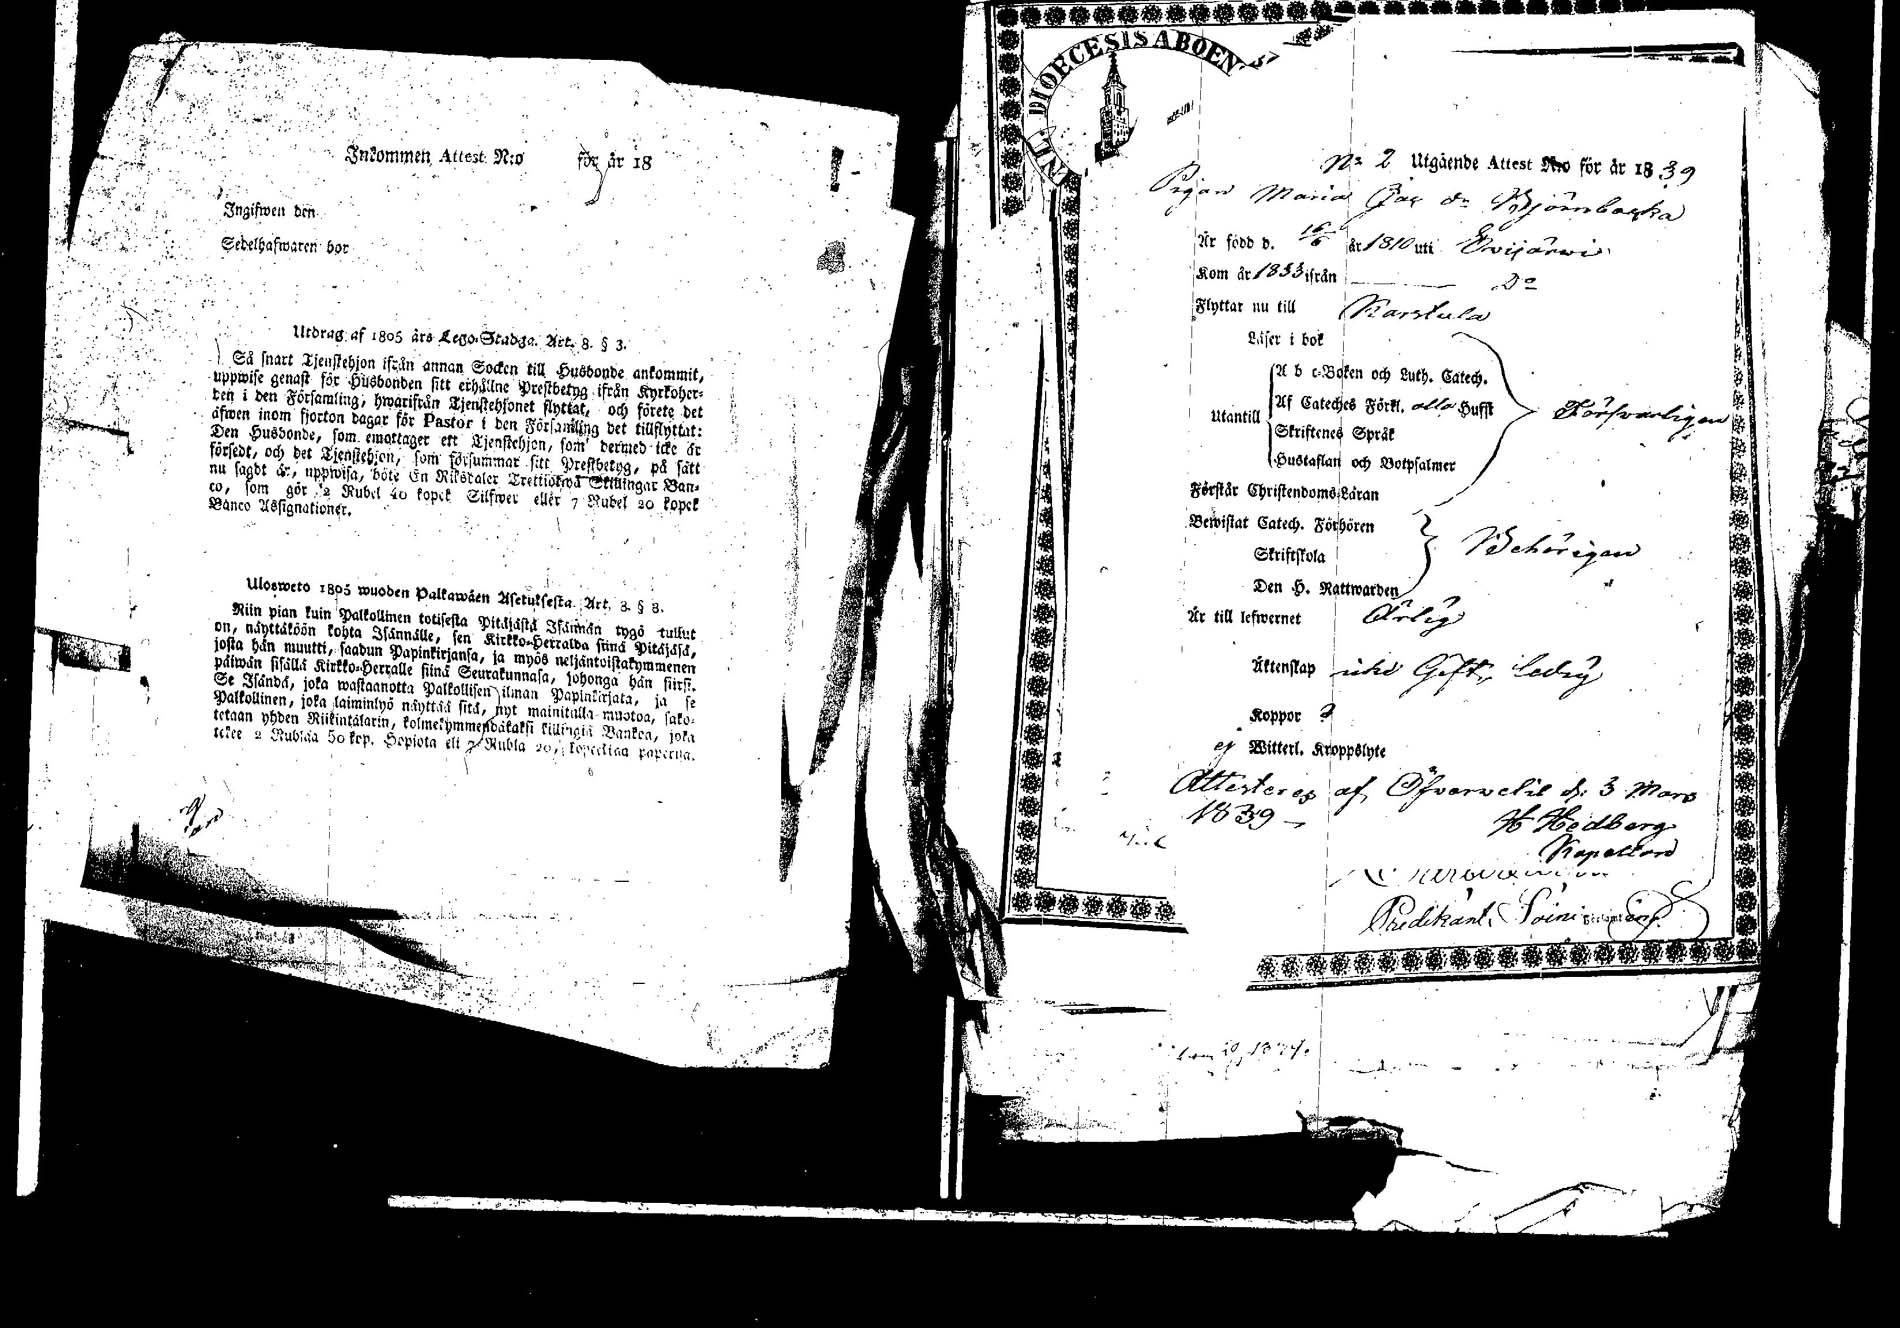 Inkommen Attest N:o för år 18
Ingifwen den
Sedelhafwaren bor
Utdrag af 1805 års Lego-Stadga. Art. 8. § 3.
Så snart Tjenstehjon ifrån annan Socken till Husbonde ankommit,
uppwise genast för Husbonden sitt erhållne Prestbetyg ifrån Kyrkoher-
den i den Församling, hwarifrån Tjenstehjonet flyttat, och förete det
äfwen inom fjorton dagar för Pastor i den Församling det tillflyttat:
Den Husbonde, som emottager ett Tjenstehjon, som dermed icke är
försedt, och det Tjenstehjon, som försummar sitt Prestbetyg, på sätt
nu sagdt är, uppwisa, böte En Riksdaler Trettiotwå Skillingar Ban-
co, som gör 2 Rubel 40 kopek Silfwer eller 7 Rubel 20 kopek
Banco Assignationer.
Ulosweto 1805 wuoden Palkawäen Asetuksesta. Art. 8. § 3.
Niin pian kuin Palkollinen totisesta Pitäjästä Isännän tygö tullut
on, näyttäköön kohta Isännälle, sen Kirkko-Herralda siinä Pitäjäsä,
josta hän muutti, saadun Papinkirjansa, ja myös neljäntoistakymmenen
päiwän sisällä Kirkko-Herralle siinä Seurakunnasa, johonga hän siirsi.
Se Isändä, joka wastaanotta Palkollisen ilman Papinkirjata, ja se
Palkollinen, joka laiminlyö näyttää sitä, nyt mainitulla muotoa, sako-
tetaan yhden Riikintalarin, kolmekymmendäkaksi killingiä Bankoa, joka
tekee 2 Rublaa 50 kop. Hopiota eli 7 Rubla 20 kopeekaa paperia.
DIOECESIS ABOEN
No 2 Utgående Attest N:o för år 1839
Pigan Maria Jac dr Björnbacka
Är född d. 16/6 år 1810 uti Evijärwi
Kom år 1833 ifrån Do
Flyttar nu till Karstula
Läser i bok
A b c-Boken och Luth. Catech.
Utantill Af Cateches Förkl. alla Hufst Försvarligen
Skriftenes Språk
Hustaflan och Botpsalmer
Förstår Christendoms Läran
Bewistat Catech. Förhören
Skriftskola Behörigen
Den H. Nattwarden
Är till lefwernet Ärlig
Äktenskap icke Gift, Ledig
Koppor
ej Witterl. Kroppslyte
Attesteras af Öfvervetil d. 3 Mars
1839
H Hedberg
Kapellan
Predikant. Soini